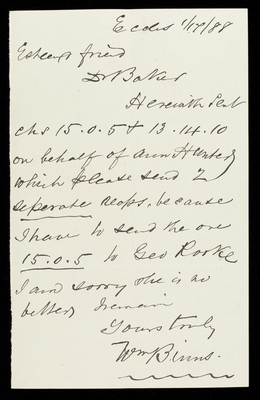 Eccles 1/17/88
Esteemed friend
Dr Baker
Herewith Sent
chs 15.0.5 & 13.14.10
on behalf of Ann Hunter
which please send 2
seperate recps. because
I have to send the one
15.0.5 to Geo Rooke
I am sorry she is no
better, I remain
Yours truly
Wm Binns.